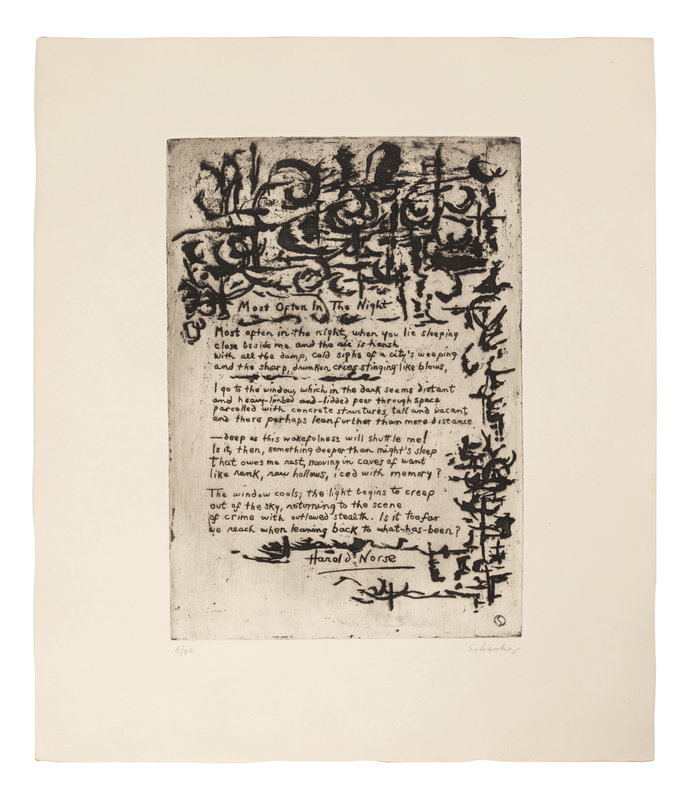 Most Often In The Night
Most often in the night, when you lie sleeping
close beside me, and the air is harsh
with all the damp, cold sighs of a city's weeping
and the sharp, drunken cries stinging like blows,
I go to the window, which in the dark seems distant
and heavy-limbed and -lidded peer through space
parcelled with concrete structures, tall and vacant
and there perhaps lean further than mere distance
—deep as this wakefulness will shuttle me!
Is it, then, something deeper than night's sleep
that owes me rest, moving in caves of want
like rank, raw hollows, iced with memory?
The window cools; the light begins to creep
out of the sky, returning to the scene
of crime with outlawed stealth. Is it too far
we reach when leaning back to what-has-been?
Harold Norse
S
6/50
Schanker